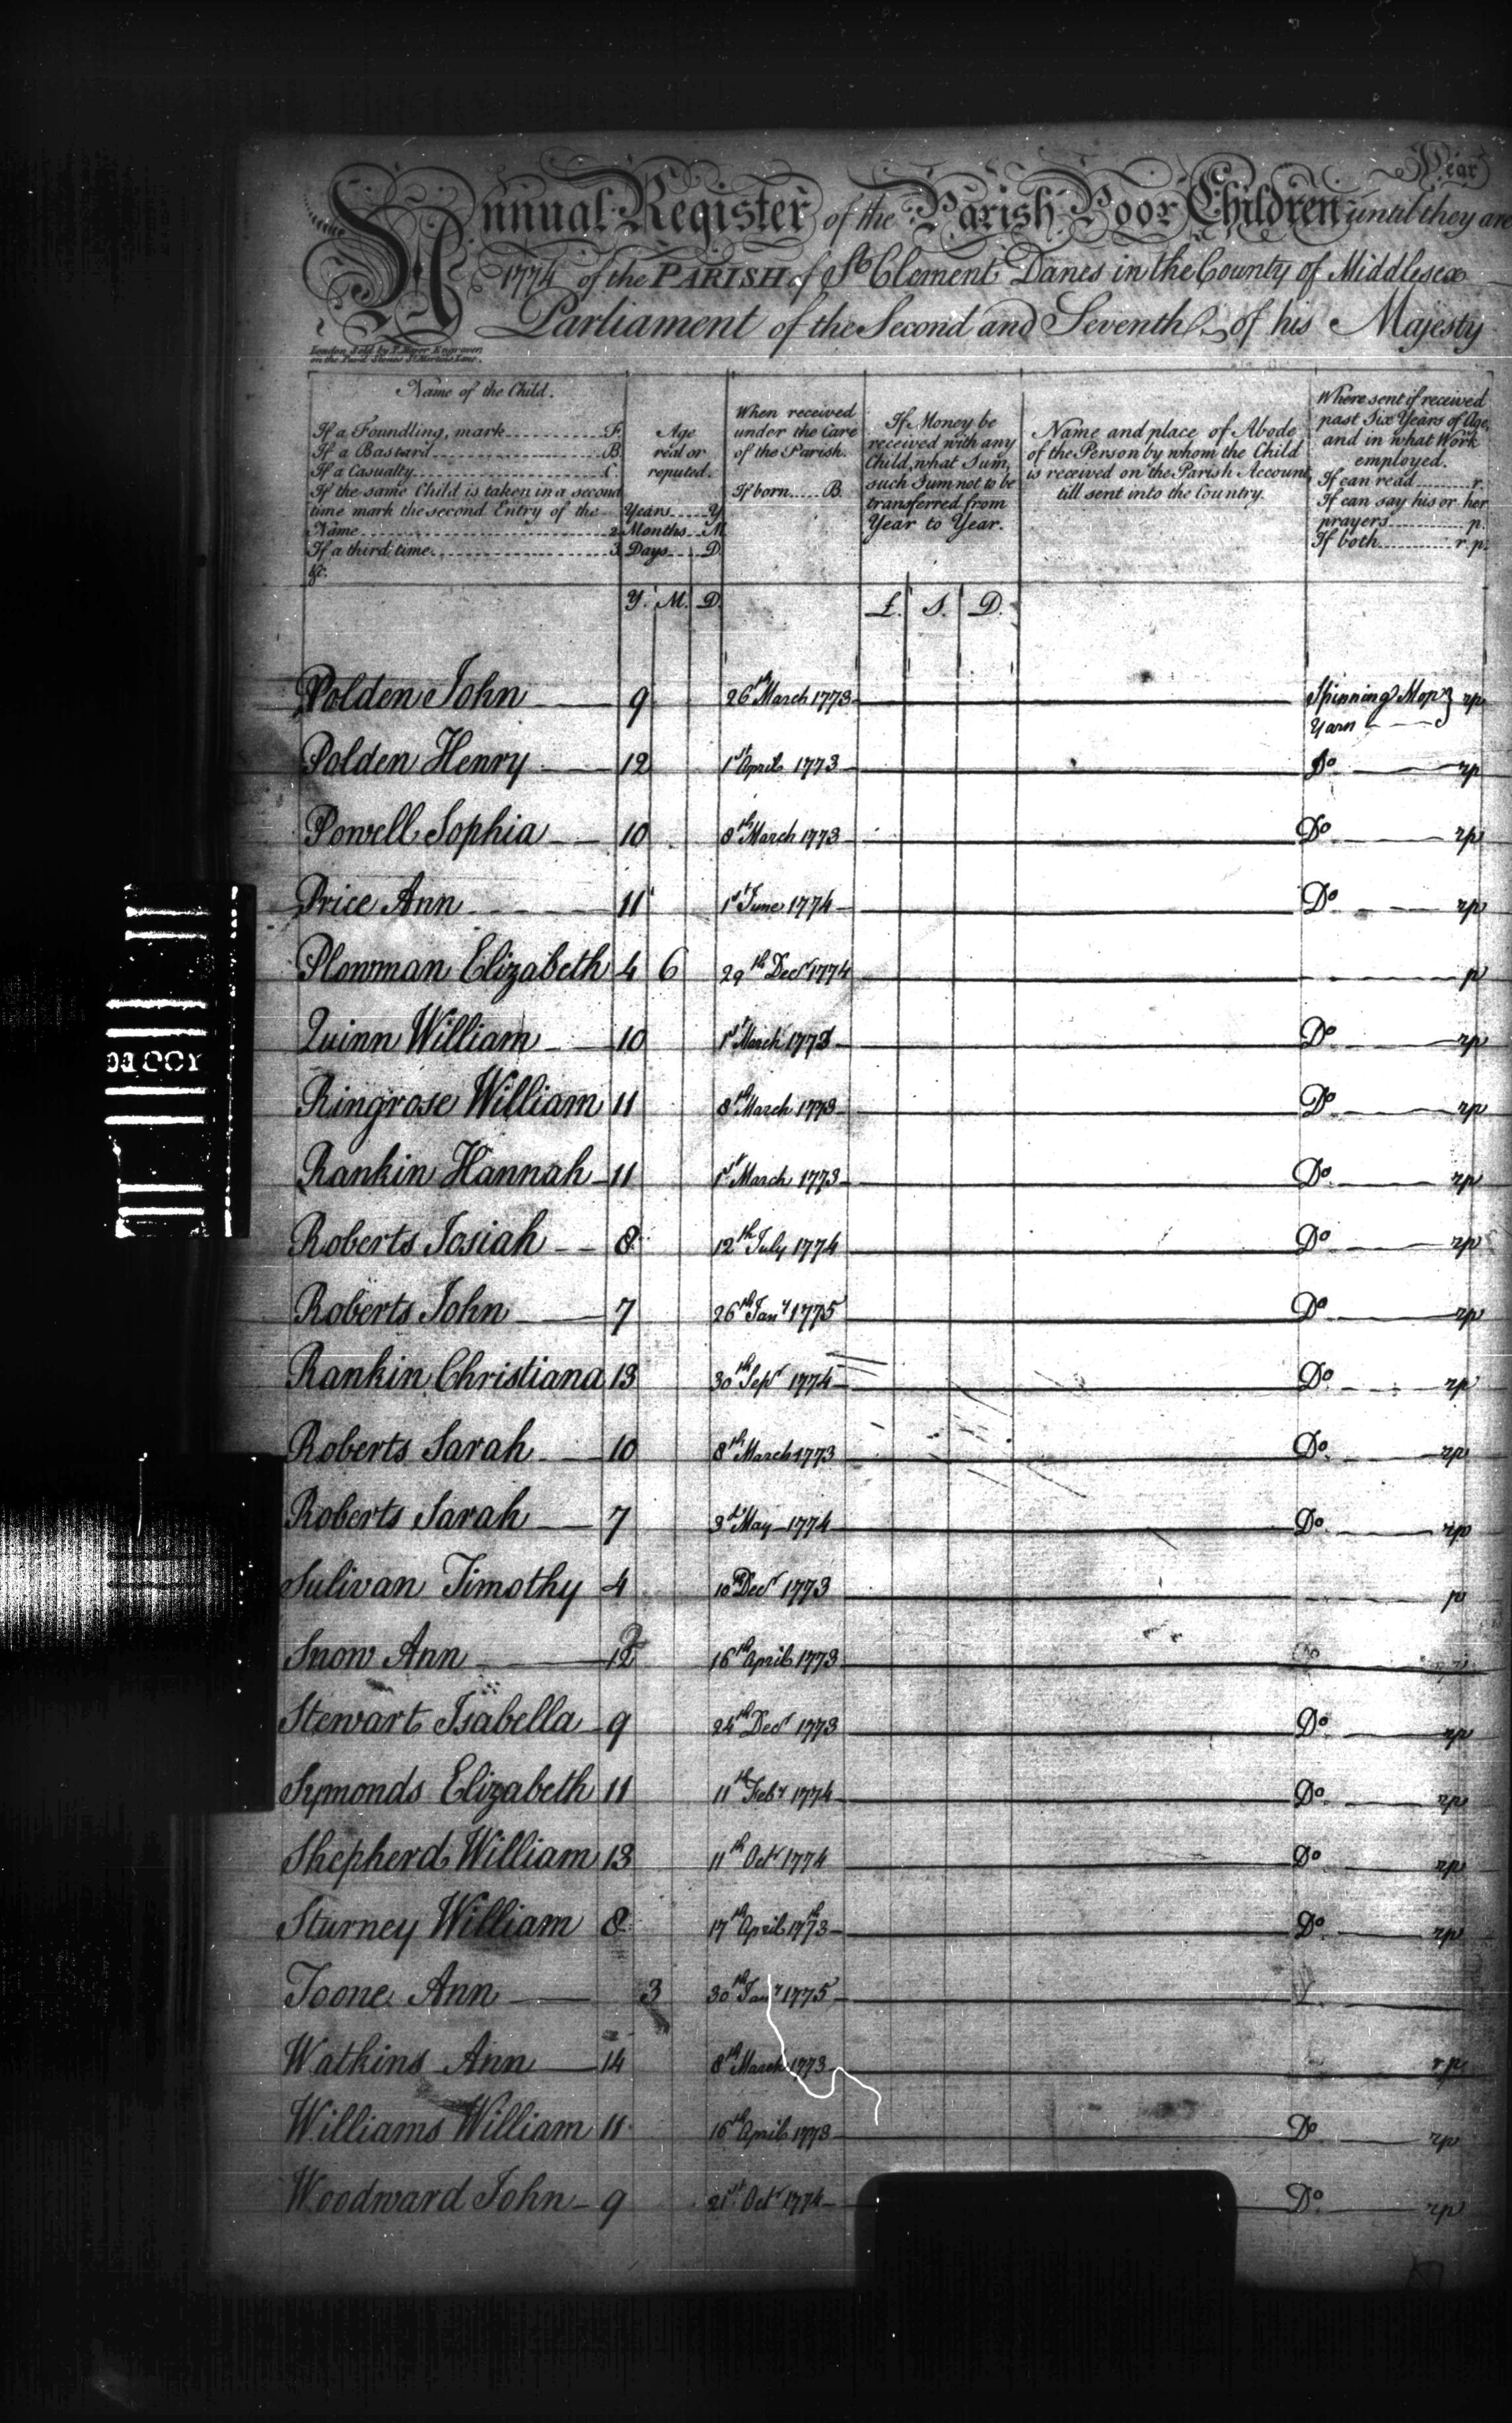 Year
Annual Register of the Parish Poor Children until they are
1774 of the PARISH of St. Clement Danes in the County of Middlesex
Parliament of the Second and Seventh of his Majesty
on the Pavd. Stones St. Martins Lane.
Name of the Child.
If a Foundling, mark............F.
If a Bastard............B.
If a Casualty............C.
If the same Child is taken in a second
time mark the second Entry of the
Name............2
If a third time............3
&c.
Age
real or
reputed.
Years....Y.
Months...M.
Days....D.
When received
under the Care
of the Parish.
If born.....B.
If Money be
received with any
Child, what Sum,
such Sum not to be
transferred from
Year to Year.
Name and place of Abode
of the Person by whom the Child
is received on the Parish Account,
till sent into the Country.
Where sent if received
past Six Years of Age,
and in what Work
employed.
If can read.........r.
If can say his or her
prayers............p.
If both.........r.p.
Y. M. D. £. S. D.
Polden John 9 26th March 1773 Spinning Mop } rp
Yarn
Polden Henry 12 1st April 1773 Do rp
Powell Sophia 10 8th March 1773 Do rp
Price Ann 11 1st June 1774 Do rp
Plowman Elizabeth 4 6 29th Decr 1774 p
Quinn William 10 1st March 1773 Do rp
Ringrose William 11 8th March 1773 Do rp
Rankin Hannah 11 1st March 1773 Do rp
Roberts Josiah 8 12th July 1774 Do rp
Roberts John 7 26th Jany 1775 Do rp
Rankin Christiana 13 30th Sepr 1774 Do rp
Roberts Sarah 10 8th March 1773 Do rp
Roberts Sarah 7 3d May 1774 Do rp
Sulivan Timothy 4 10th Decr 1773 p
Snow Ann 12 16th April 1773 Do
Stewart Isabella 9 24th Decr 1773 Do rp
Symonds Elizabeth 11 11th Feby 1774 Do rp
Shepherd William 13 11th Octr 1774 Do rp
Sturney William 8 17th April 1773 Do rp
Toone Ann 3 30th Jany 1775
Watkins Ann 14 8th March 1773 rp
Williams William 11 16th April 1773 Do rp
Woodward John 9 21st Octr 1774 Do rp